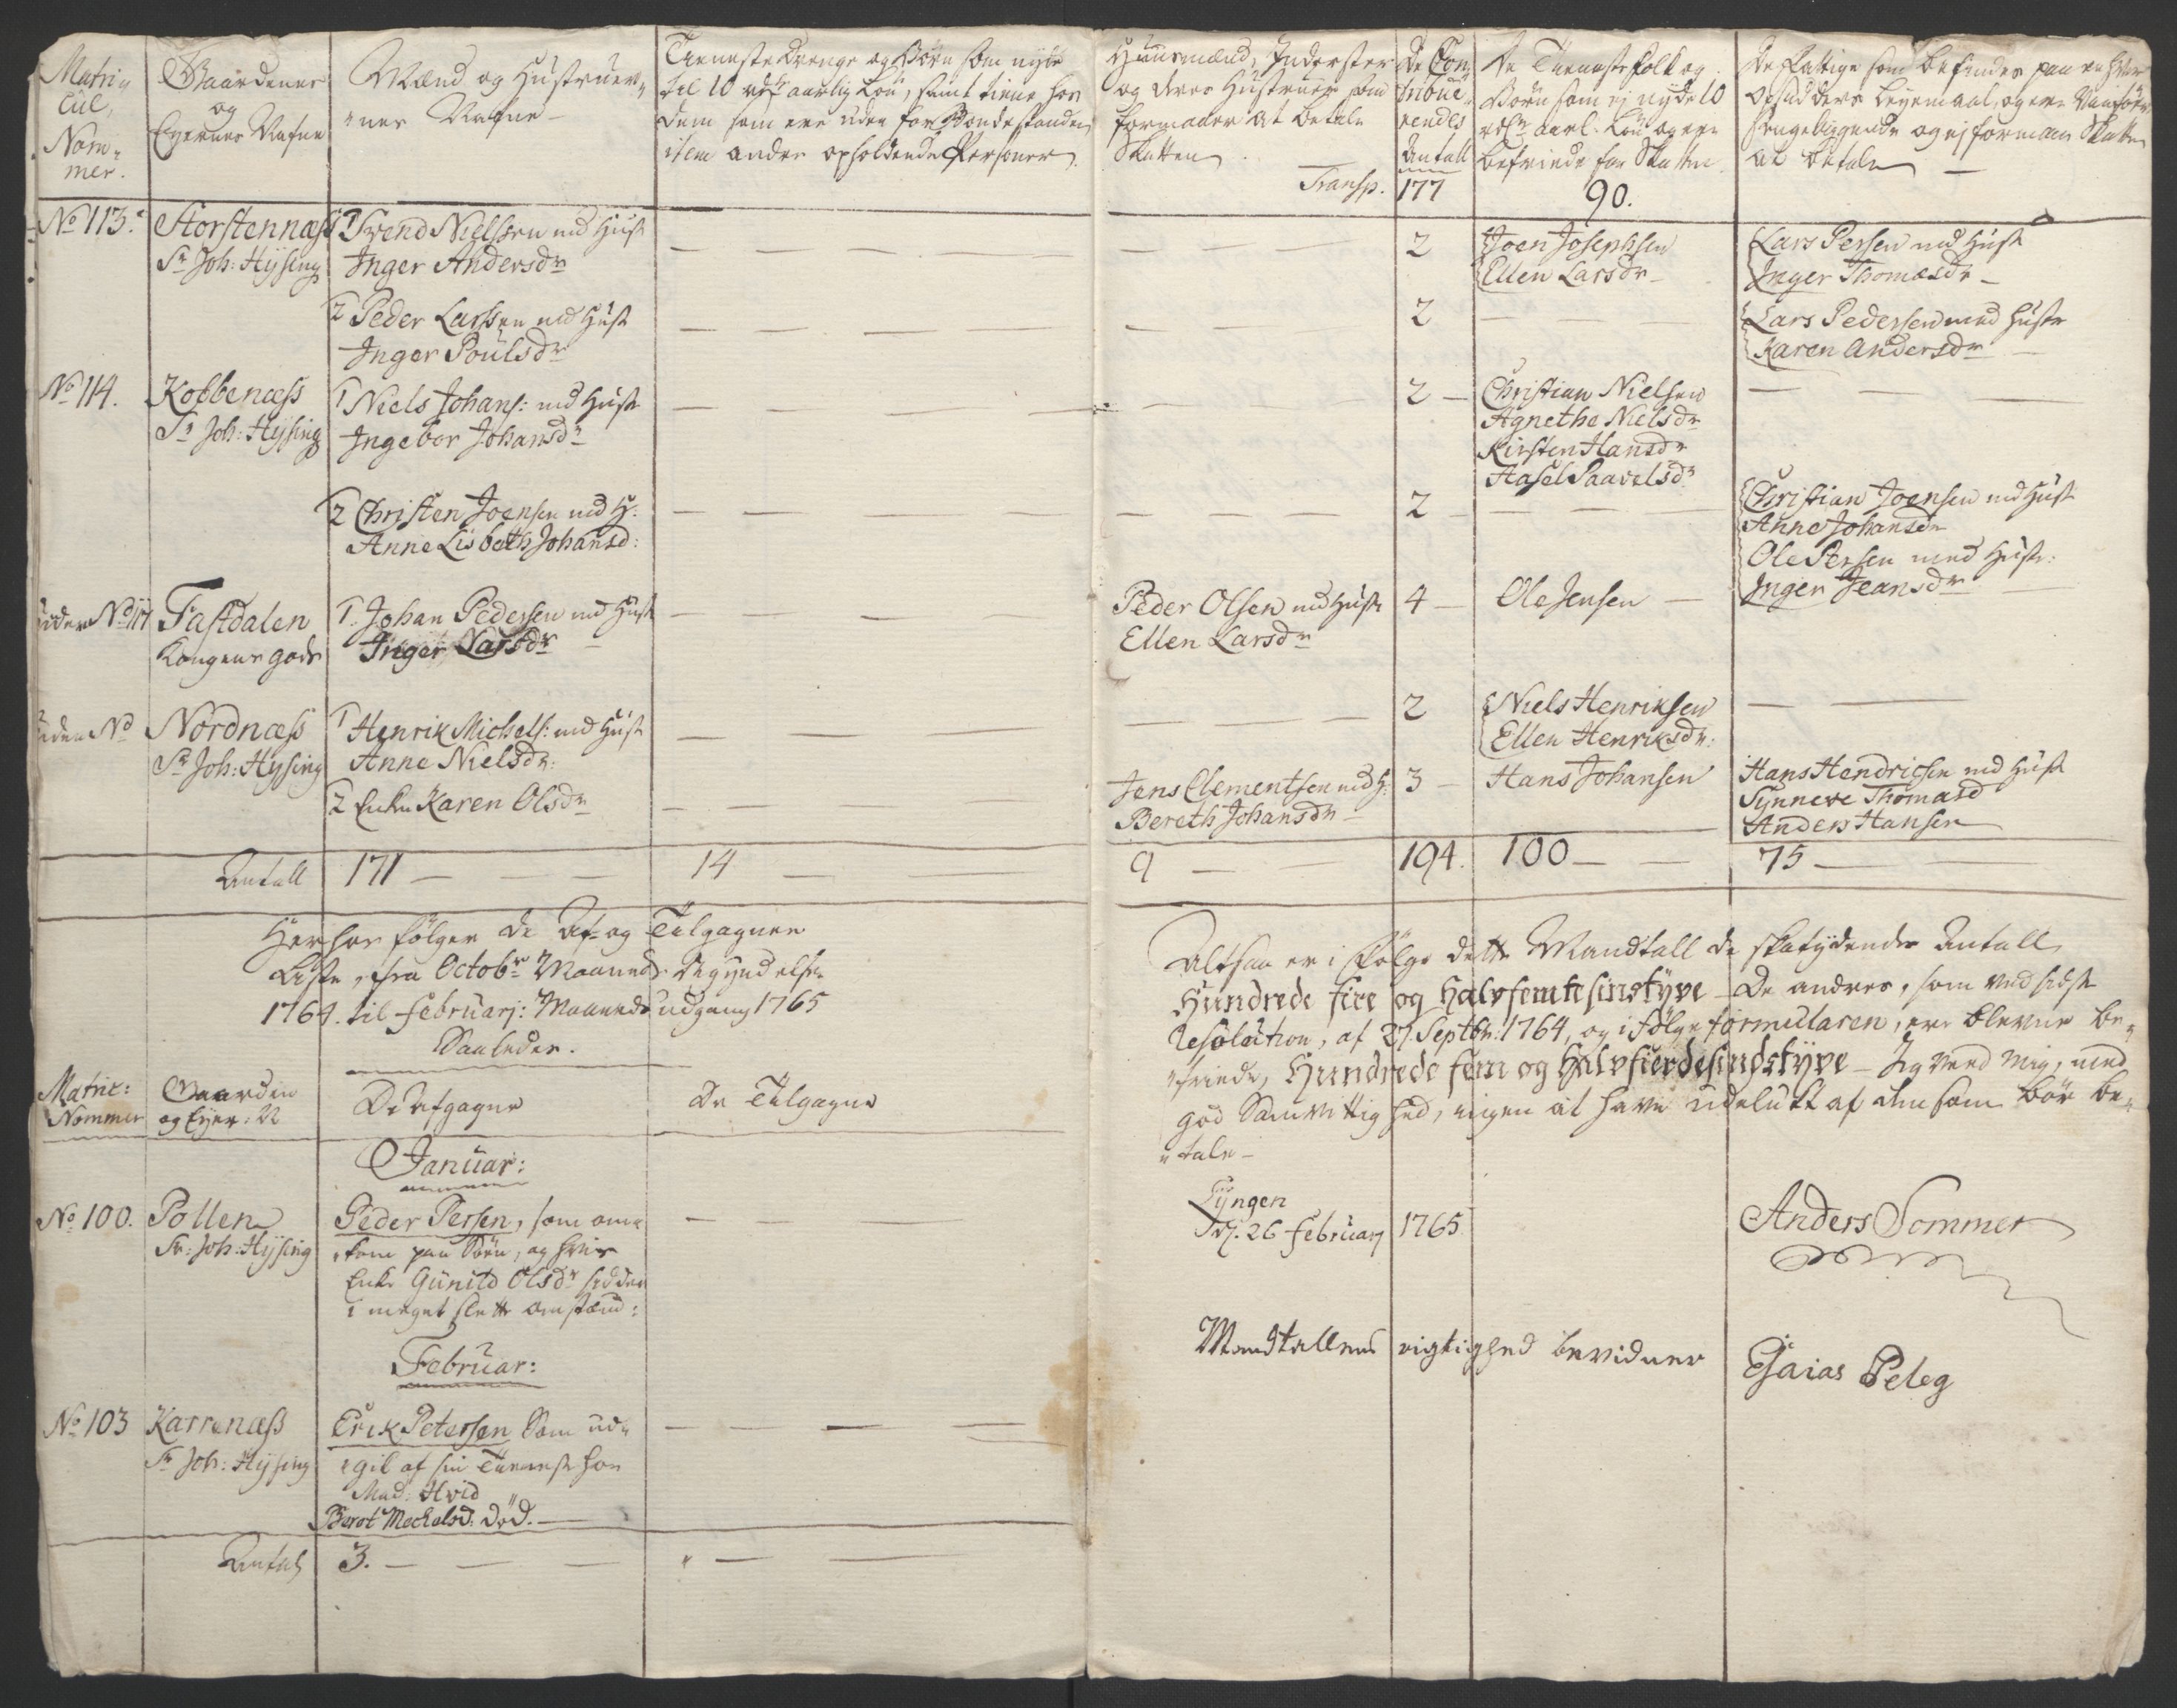 Matri„
cül,
Nom„
mer.
Gaardenes
og
Eyernes Nafne
Mænd og Hustruer„
„nes Nafne
Tieneste Drenge og Börn som nyde
til 10 rdr aarlig Lön, samt tiene hos
dem som ere uden for Bondestanden
item andre opholdende Personer.
Huusmænd, Inderster
og deres Hustruer som
formaaer at betale
Skatten
De Con
tribue„
rendes
Antall
De Tieneste folk og
Börn som ej nyde 10
rdr aarl. Lön og ere
befriede for Skatten
De Fattige som befindes paa en hver
Opsidders Leyemaal, og ere Vanföre
Sengeliggende og ej formaaer Skatten
at betale
Transp. 177 90.
No 113. Storstennæss
Sr Joh: Hÿsing
1 Svend Nielssen md Hust
Inger Andersdr
2
Joen Josephsen
Ellen Larsdr
Lars Persen md Hust
Inger Thomædr
2 Peder Larssen md Hust
Inger Poülsdr
2
Lars Pedersen med Hustr
Karen Andersdr
No 114. Kobbenæss
Sr Joh: Hÿsing
1 Niels Johans: md Hust
Ingebor Johansdr
2
Christian Nielsen
Agnethe Nielsdr
Kirsten Hansdr
Aasel Paavelsdr
2 Christen Joensen md H.
Anne Lisbeth Johansd:
2
Christian Joensen md Hust
Anne Johansdr
Ole Persen med Hustr.
Inger Jeansdr
Under No 114 Fastdalen
Kongens gods
1. Johan Pedersen md Hust
Inger Larsdr
Peder Olsen md Hustr
Ellen Larsdr
4 Ole Jensen
Uden No Nordnæss
Sr Joh: Hÿsing
1 Henrik Michels: md Hust
Anne Nielsdr
2
Niels Henriksen
Ellen Henriksdr:
2 Enke Karen Olsdr
Jens Clementsen md H:
Bereth Johansdr
3 Hans Johansen
Hans Hendricsen md Hust
Synneve Thomasd
Anders Hansen
Antall 171 14 9 194. 100 75
Her hos fölger de Af- og Tilgagnes
Liste, fra Octobr Maaneds Begÿndelse
1764. til Februarj: Maaneds udgang 1765
Saaledes.
Matric:
Nommer
Gaarden
og Eyer: N
De Afgagne
De Tilgagne
Januar:
No 100. Pollen
Sr: Joh: Hÿsing
Peder Persen, som om„
„kom paa Söen, og hvis
Enke Günild Olsdr sidder
i meget slette omstænd:
Februar:
No 103 Karrenæss
Sr Joh: Hÿsing
Erik Petersen Som ud„
„gik af sin Tieneste hos
Mad: Hvid
Beret Mechelsd: död.
Antal 3.
Altsaa er i fölge dette Mandtall de skatÿdendes Antall
Hundrede fire og halvfemtesinstÿve De andres, som ved sidste
Resolution, af 27. Septbr: 1764, og i fölge formularen, ere blevne be„
„friede, Hundrede fem og halvfierdesindstÿve – Jeg veed mig, med
god Samvittighed, ingen at have udelukt af dem som bör be„
„tale –
Lÿngen
D. 26 Februarj 1765
Anders Sommer
Mandtallens rigtighed bevidner
Esaias Peleg